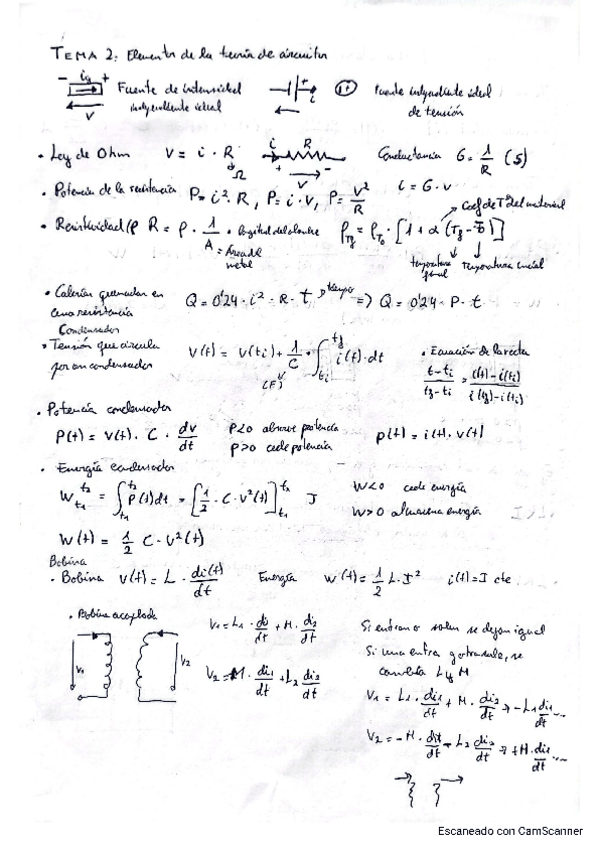 TEMA 2: Elementos de la teoría de circuitos
- ig +
Fuente de intensidad
independiente ideal
V
+ i
Fuente independiente ideal
de tensión
· Ley de Ohm V = i · R
Ω
i
+ V -
Conductancia G = 1/R (S)
· Potencia de la resistencia P = i² · R, P = i · V, P = V²/R
i = G · v
Coef de Tª del material
· Resistividad (ρ R = ρ · 1/A
· longitud del alambre
= Área del
metal
ρTf = ρTo · [1 + α (Tf - To)]
temperatura final
Temperatura inicial
· Calorías generadas en
una resistencia
Q = 0'24 · i² · R · t tiempo => Q = 0'24 · P · t
Condensador
· Tensión que circula
por un condensador
V(t) = V(ti) + 1/C · ∫ti tf i(t) · dt
(F)
· Ecuación de la recta
t-ti / tf-ti = i(t)-i(ti) / i(tf)-i(ti)
· Potencia condensador
P(t) = V(t) · C · dv/dt
P<0 absorve potencia
P>0 cede potencia
p(t) = i(t) · v(t)
· Energía condensador
W t1 t2 = ∫t1 t2 P(t)dt = [1/2 · C · V²(t)] t1 t2 J
W<0 cede energía
W>0 almacena energía
W(t) = 1/2 C · V²(t)
Bobina
· Bobina V(t) = L · di(t)/dt
Energía W(t) = 1/2 L · I² i(t) = I cte
· Bobina acoplada
V1 V2
V1 = L1 · di1/dt + M · di2/dt
V2 = M · di1/dt + L2 di2/dt
Si entran o salen se dejan igual
Si una entra y otra sale, se
cambia L y M
V1 = L1 · di1/dt + M · di2/dt → -L1 di1/dt ...
V2 = -M · di1/dt - L2 di2/dt → +M · di1/dt ...
Escaneado con CamScanner